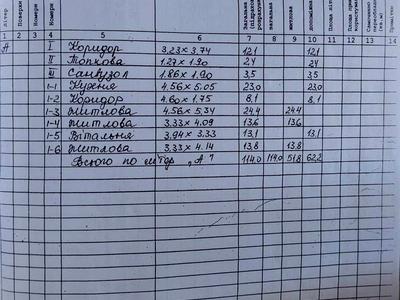 Літер
Поверхи
Номери
Номери
Загальна
загальна
житлова
допоміжна
1 2 3 4 5 6 7 8 9 10 11 12 13 14
А I Коридор 3.23 x 3.74 12,1 12,1
II Топкова 1.27 x 1.90 2,4 2,4
III Санвузол 1.86 x 1.90 3,5 3,5
1-1 Кухня 4.56 x 5.05 23,0 23,0
1-2 Коридор 4.60 x 1.75 8,1 8,1
1-3 Житлова 4.56 x 5.34 24,4 24,4
1-4 Житлова 3.33 x 4.09 13,6 13,6
1-5 Вітальня 3.94 x 3.33 13,1 13,1
1-6 Житлова 3.33 x 4.14 13,8 13,8
Всього по літер „А" 114,0 114,0 51,8 62,2